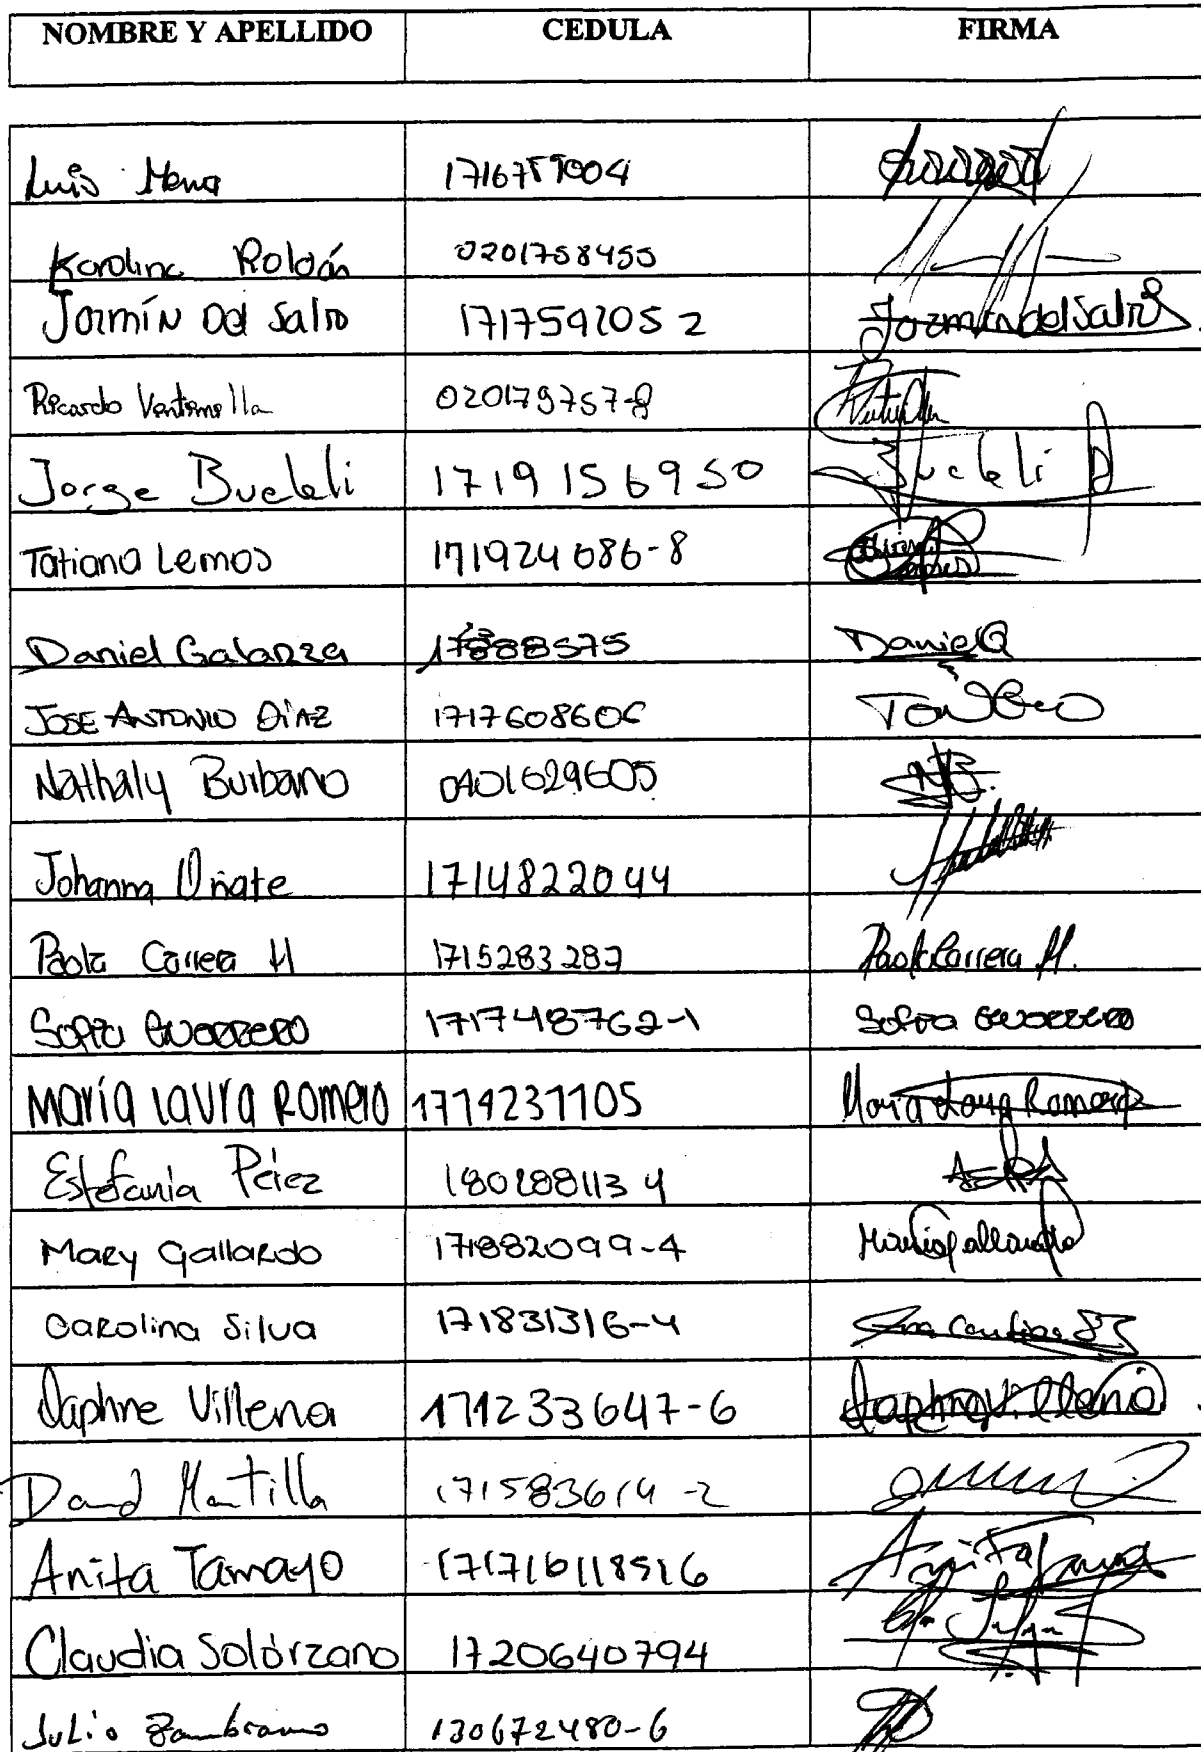 NOMBRE Y APELLIDO CEDULA FIRMA
Luis Mena
Karolina Roldán 0201758455
Jazmín Del Salto 171759205 2 Jazmín del Salto
Ricardo Ventimilla 020179757-8
Jorge Bucheli 1719156950 Bucheli
Tatiana Lemos 171924086-8
Daniel Galarza Daniel G
JOSE ANTONIO DÍAZ 1717608606
Nathaly Burbano 0401629605 NB.
Johanna Oñate 1714822044
Paola Carrera H 1715283287 Paola Carrera H.
Sofia Guerrero 171748762-1 Sofia Guerrero
María Laura Romero 1714231105 María Laura Romero
Estefanía Pérez 180288113 4
Mary Gallardo 171882099-4
Carolina Silva 171831316-4
Daphne Villena 171233647-6 Daphne Villena
David Mantilla 171583614-2
Anita Tamayo Anita Tamayo
Claudia Solórzano 1720640794
Julio Zambrano 130672480-6